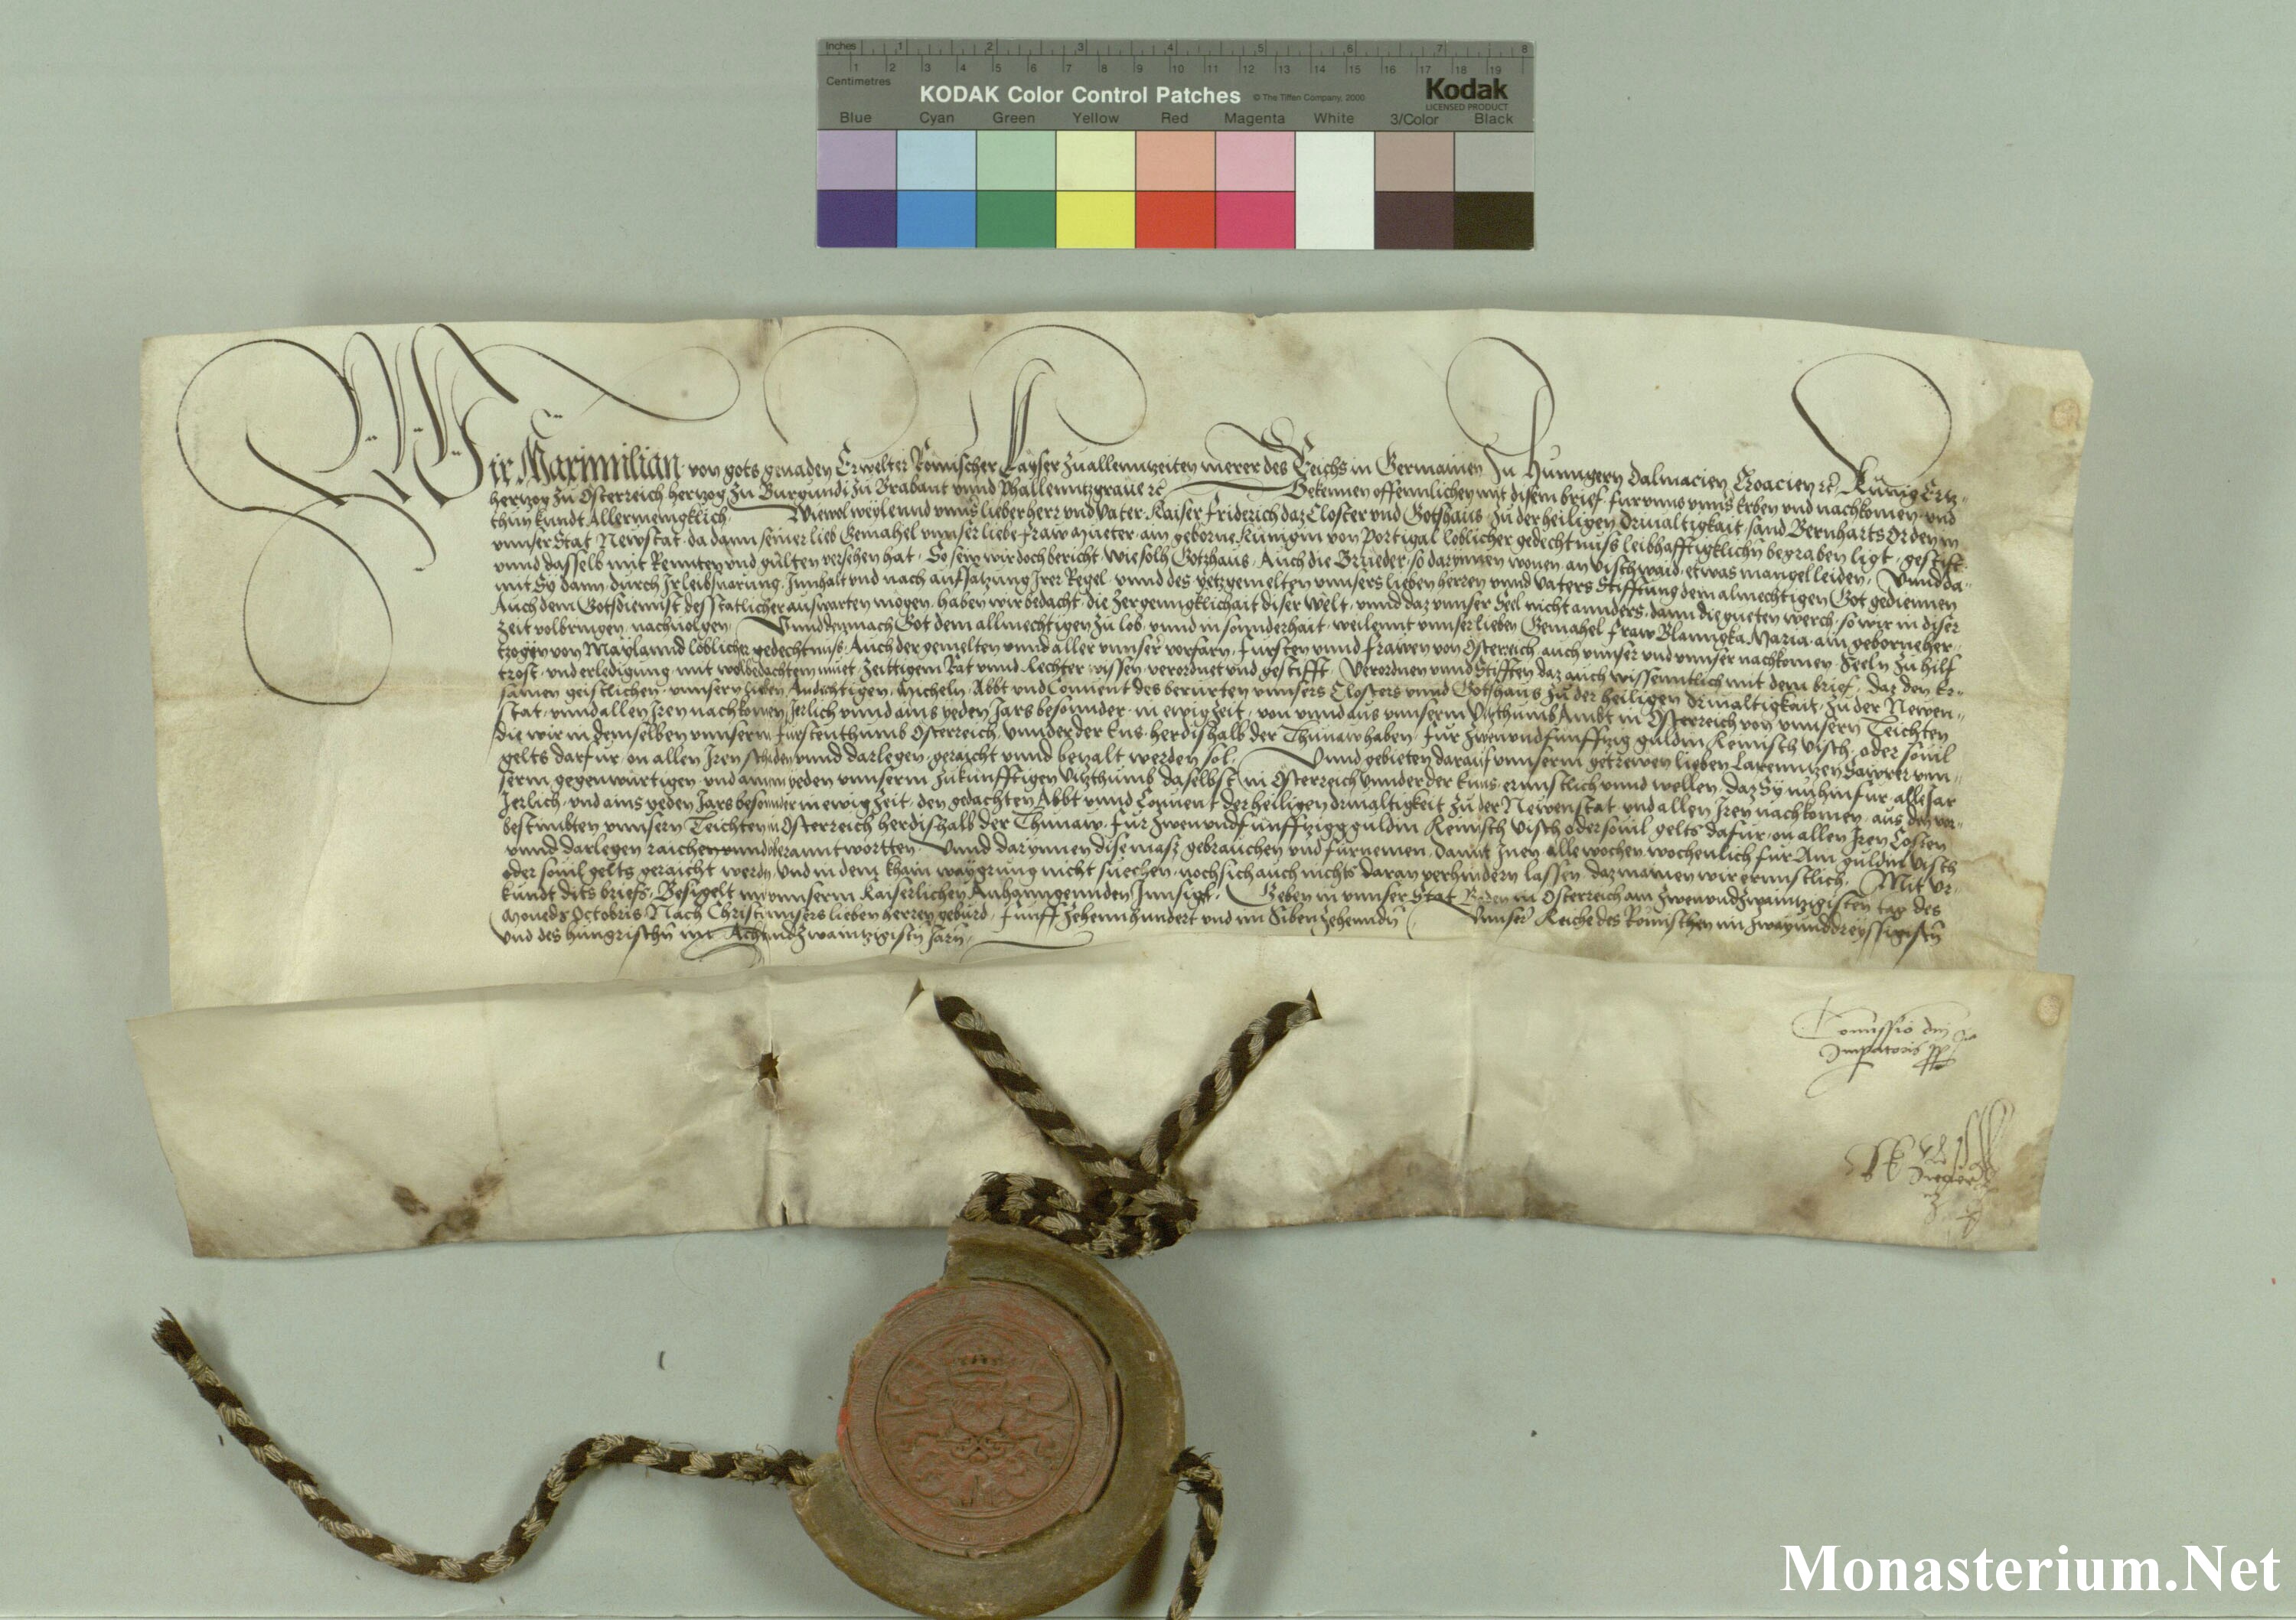 Inches 1 2 3 4 5 6 7 8
1 2 3 4 5 6 7 8 9 10 11 12 13 14 15 16 17 18 19
Centimetres
KODAK Color Control Patches © The Tiffen Company, 2000 Kodak
LICENSED PRODUCT
Blue Cyan Green Yellow Red Magenta White 3/Color Black
Wir Maximilian von gots genaden Erwelter Römischer Kayser zuallenntzeiten merer des Reichs in Germanien zu Hunngern Dalmacien Croacien rc Künig Ertz-
hertzog zu Osterreich hertzog zu Burgundi zu Brabant unnd Phallenntzgraue rc Bekennen offennlichen mit disem brief fur unns unns erben und nachkomen und
thun kundt Allermenigklich Wiewol weylennd unns lieber herr und Vater Kaiser Friderich daz Closter und Gotshaus zu der heiligen Drivaltigkait sand Bernharts Orden in
unnser Stat Newstat da dann seiner lieb Gemahel unnser liebe Fraw Mueter ain geborne Künigin von Portigal loblicher gedechtnuss leibhafftigklichn begraben ligt gestifft
unnd dasselb mit Rennten und gülten versehen hat So sein wir doch bericht wie solh Gotzhaus Auch die Brueder so darynnen wonen an Visch waid etwas mangel leiden Unnd da-
mit Sy dann durch Ir leibsnarung Innhalt und nach aufsatzung Irer Regel unnd des yetzgemelten unnsers lieben herren unnd Vaters Stifftung dem almechtigen Got gediennen
Auch dem Gotsdiennst des statlicher auswarten mögen haben wir bedacht die zergenngklichait diser Welt unnd daz unnser Seel nicht annders dann die gueten werch so wir in diser
zeit volbringen nachvolgen Unnd demnach Got dem allmechtigen zu lob unnd in sonnderhait weilennt unnser lieben Gemahel fraw Blanngka Maria ain geborne her-
tzogin von Maylannd löblicher gedechtnuss Auch der gemelten unnd aller unnser vorfarn Fürsten unnd Frawen von Osterreich auch unnser und unnser nachkomen Seeln zu hilf
trost und erledigung mit wolbedachtem muet zeittigem Rat unnd Rechter wissen verordnet und gestifft Verordnen unnd Stifften daz auch wissenntlich mit dem brief daz den Er-
samen geistlichen unnsern lieben Andechtigen Micheln Abbt und Convent des berurten unnsers Closters unnd Gotshaus zu der heiligen Drivaltigkait zu der Newen-
stat unnd allen Iren nachkomen Jerlich unnd ains yeden Jars besonnder in ewig zeit von unnd aus unnserm Vitzthumb Ambt in Osterreich von unnsern Teichten
die wir in demselben unnserm Fürstenthumb Osterreich unnder der Enns herdishalb der Thunaw haben für zwenundfunffzig guldin Reinisch Visch oder sovil
gelts darfur on allen Iren schaden unnd darlegen geraicht unnd bezalt werden sol Unnd gebieten darauf unnserm getrewen lieben Larenntzen Sawrer unn-
serm gegenwürtigen und ainem yeden unnserm zukünfftigen Vitzthumb daselbst in Osterreich unnder der Enns ernnstlich unnd wellen daz Sy nu hinfur alle Jar
Jerlich und ains yeden Jars besonnder in ewig zeit den gedachten Abbt unnd Convent der heiligen Drivaltigkeit zu der Newenstat und allen Iren nachkomen aus den vor-
bestimbten unnsern Teichten in Osterreich herdishalb der Thunaw fur zwenundfunffzigg guldin Reinisch Visch oder sovil gelts dafur on allen Iren Costen
unnd darlegen raichen unnd uberanntwortten Unnd darynnen dise masz gebrauchen und furnemen damit Inen alle wochen wochenlich fur Ain guldin Visch
oder sovil gelts geraicht werden Und in dem khain waygrung nicht suechen noch sich auch nichts daran verhindern lassen daz mainen wir ernnstlich Mit ur-
kundt dits briefs Besigelt mit unnserm Kaiserlichen Anhanngennden Innsigl Geben in unnser Stat Baden in Osterreich am zwenundzwaintzigisten tag des
Moneds Octobris Nach Christi unsers lieben herren geburd Funffzehennhundert und im Sibenzehenndn Unnser Reiche des Römischen im zwayunddreyssigistn
und des hungrischn im Achtundzwaintzigistn Jarn
Comissio dni
Imperatoris pp
Monasterium.Net